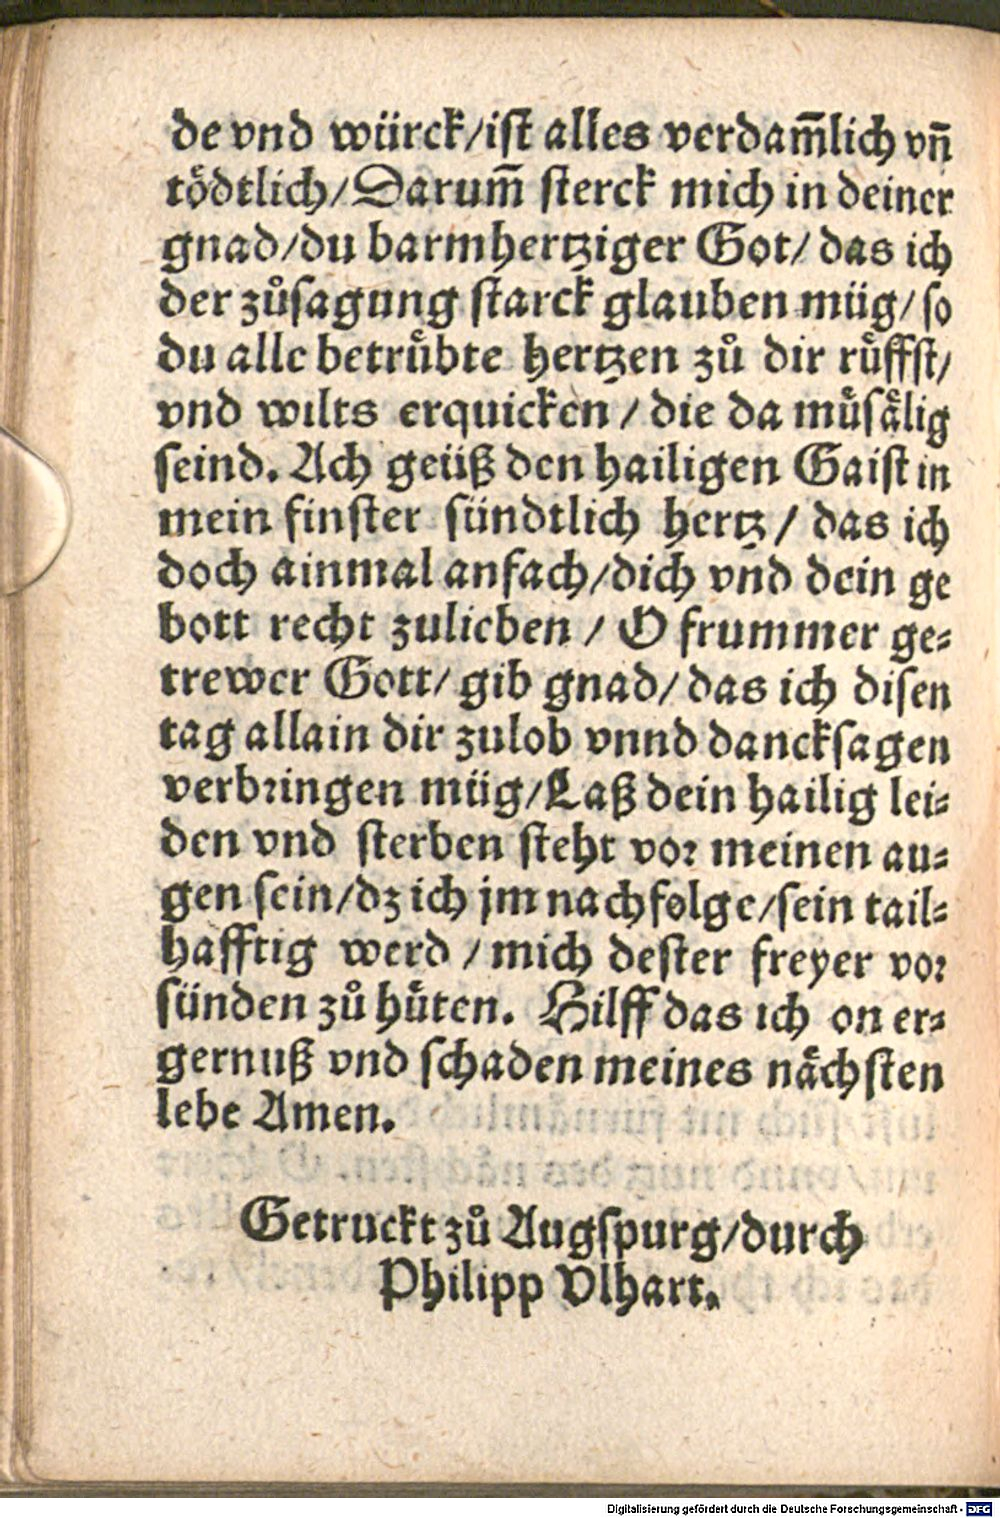 de vnd würck/ist alles verdam̃lich vñ
tödtlich/Darum̃ sterck mich in deiner
gnad/du barmhertziger Got/ das ich
der zůsagung starck glauben müg/ so
du alle betrůbte hertzen zů dir růffst/
vnd wilts erquicken / die da můsålig
seind. Ach geüß den hailigen Gaist in
mein finster sündtlich hertz / das ich
doch ainmal anfach/dich vnd dein ge
bott recht zulieben / O frummer ge⸗
trewer Gott/ gib gnad/ das ich disen
tag allain dir zulob vnnd dancksagen
verbꝛingen müg/Laß dein hailig lei⸗
den vnd sterben steht voꝛ meinen au⸗
gen sein/dz ich jm nachfolge/sein tail⸗
hafftig werd / mich dester freyer voꝛ
sünden zů hůten. Hilff das ich on er⸗
gernuß vnd schaden meines nåchsten
lebe Amen.
Getruckt zů Augspurg/durch
Philipp Vlhart.
Digitalisierung gefördert durch die Deutsche Forschungsgemeinschaft - DFG